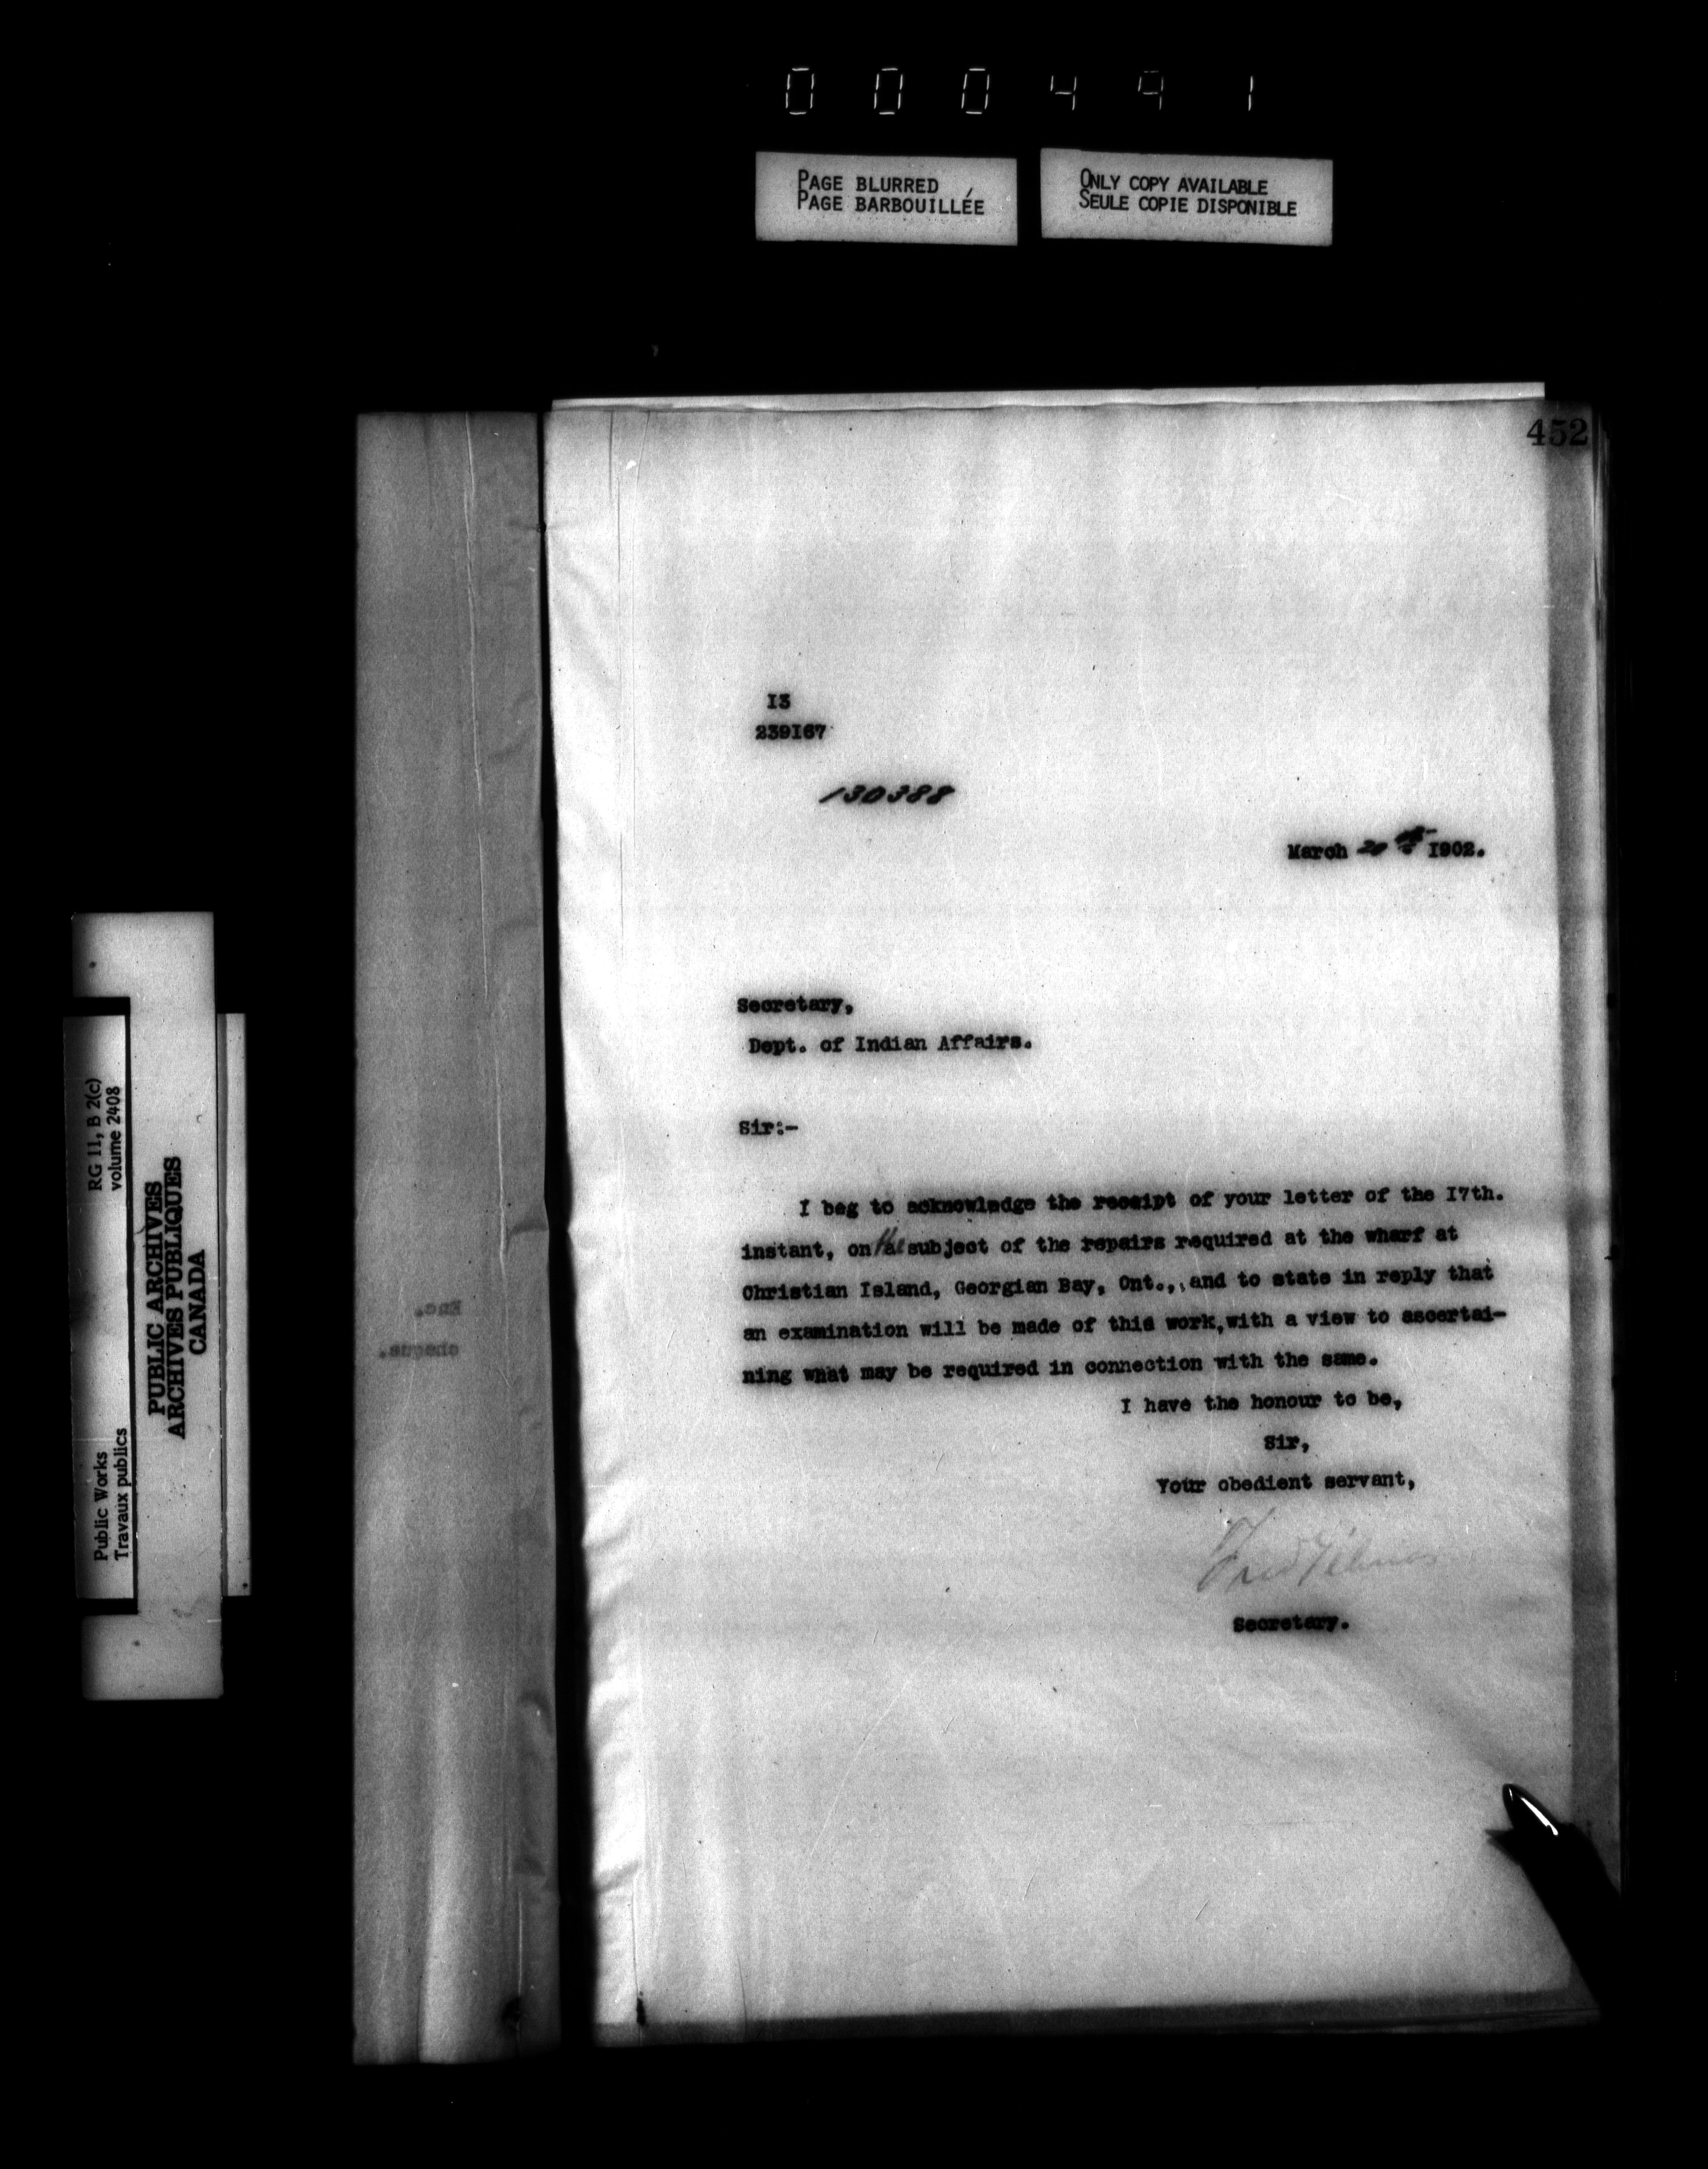 000491
PAGE BLURRED
PAGE BARBOUILLÉE
ONLY COPY AVAILABLE
SEULE COPIE DISPONIBLE
452
I3
239I67
130388
March 20th I902.
Secretary,
Dept. of Indian Affairs.
Sir:-
I beg to acknowledge the receipt of your letter of the I7th.
instant, on the subject of the repairs required at the wharf at
Christian Island, Georgian Bay, Ont., and to state in reply that
an examination will be made of this work, with a view to ascertai-
ning what may be required in connection with the same.
I have the honour to be,
Sir,
Your obedient servant,
Fred Gélinas
Secretary.
Enc.
cheque.
RG 11, B 2(c)
volume 2408
Public Works
Travaux publics
PUBLIC ARCHIVES
ARCHIVES PUBLIQUES
CANADA